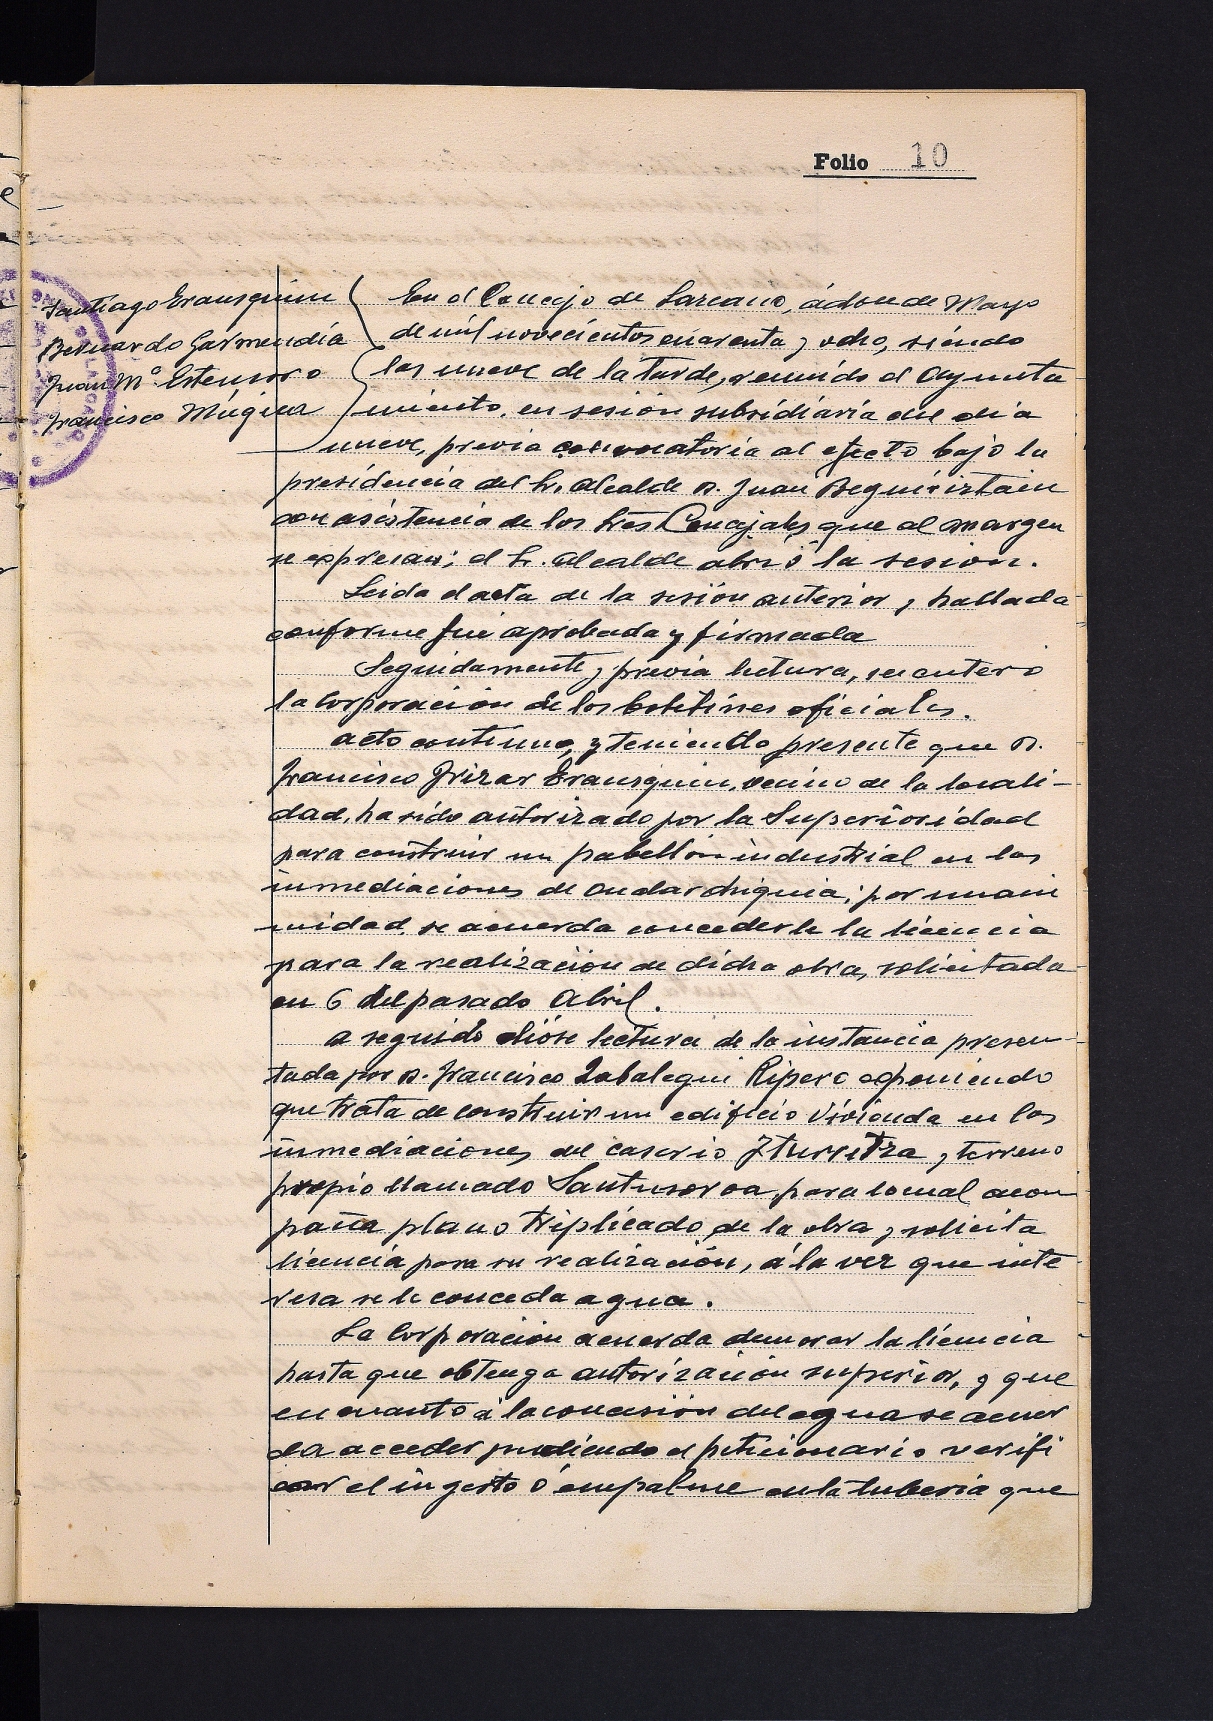 Folio 10
Santiago Erausquin
Bernardo Garmendia
Juan Mª Estensoro
Francisco Múgica
En el Concejo de Lazcano, á doce de Mayo
de mil novecientos cuarenta y ocho, siendo
las nueve de la tarde, reunido el Ayunta
miento en sesión subsidiaria del dia
nueve, previa convocatoria al efecto bajo la
presidencia del Sr. Alcalde D. Juan Beguiristain
con asistencia de los tres Concejales que al margen
se expresan; el Sr. Alcalde abrió la sesion.
Leida el acta de la sesión anterior y hallada
conforme fué aprobada y firmada
Seguidamente y previa lectura, se enteró
la Corporación de los boletines oficiales.
Acto continuo, y teniendo presente que D.
Francisco Irizar Erausquin, vecino de la locali-
dad, ha sido autorizado por la Superioridad
para construir un pabellón industrial en las
inmediaciones de Ondarchiquia; por unani
midad, se acuerda concederle la licencia
para la realización de dicha obra, solicitada
en 6 del pasado Abril.
A seguido dióse lectura de la instancia presen-
tada por D. Francisco Zabalegui Ripero exponiendo
que trata de construir un edificio vivienda en las
inmediaciones del caserio Iturritza y terreno
propio llamado Santusoroa, para lo cual acom
paña plano triplicado de la obra y solicita
licencia para su realización, á la vez que inte
resa se le conceda agua.
La Corporación acuerda demorar la licencia
hasta que obtenga autorización superior, y que
en cuanto á la concesión del agua se acuer
da acceder pudiendo el peticionario verifi
car el ingerto ó empalme en la tuberia que